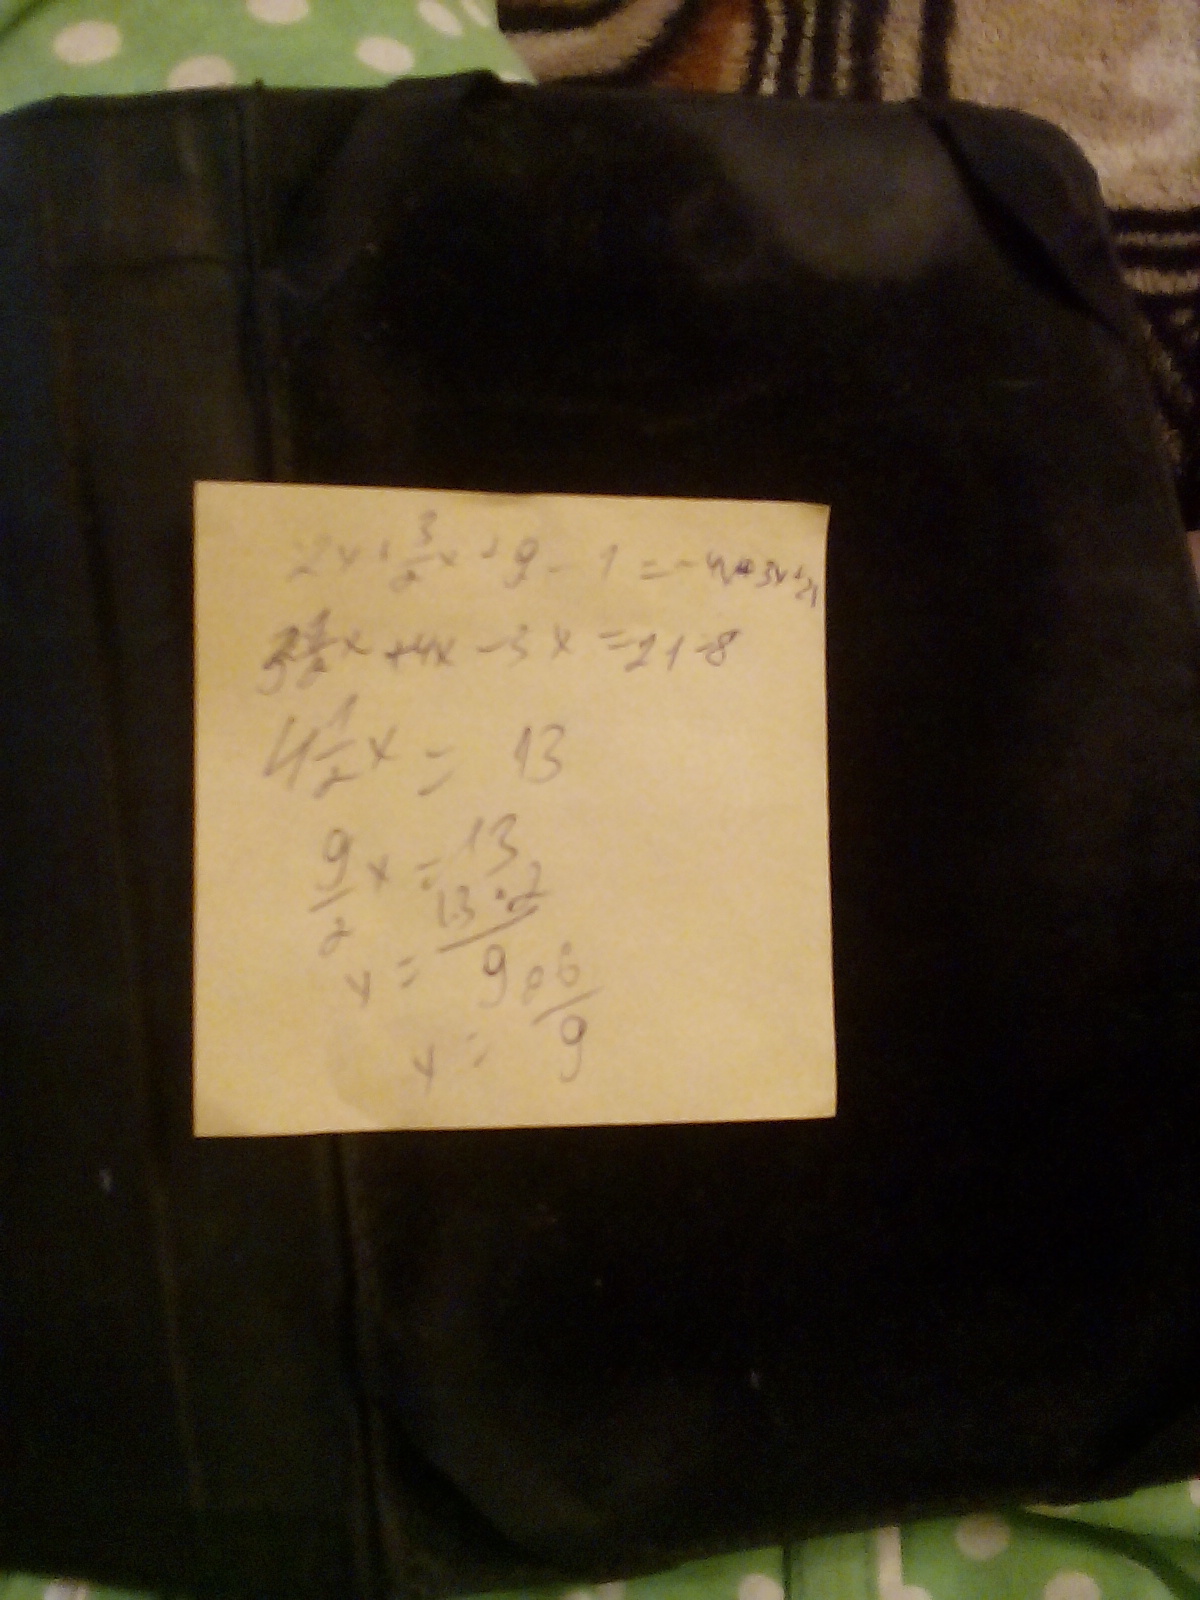 2x + 3/2 x + 9 - 1 = -4x + 3x + 21
3 1/2 x + 4x - 3x = 21 - 8
4 1/2 x = 13
9/2 x = 13
x = 13 · 2 / 9
x = 26/9